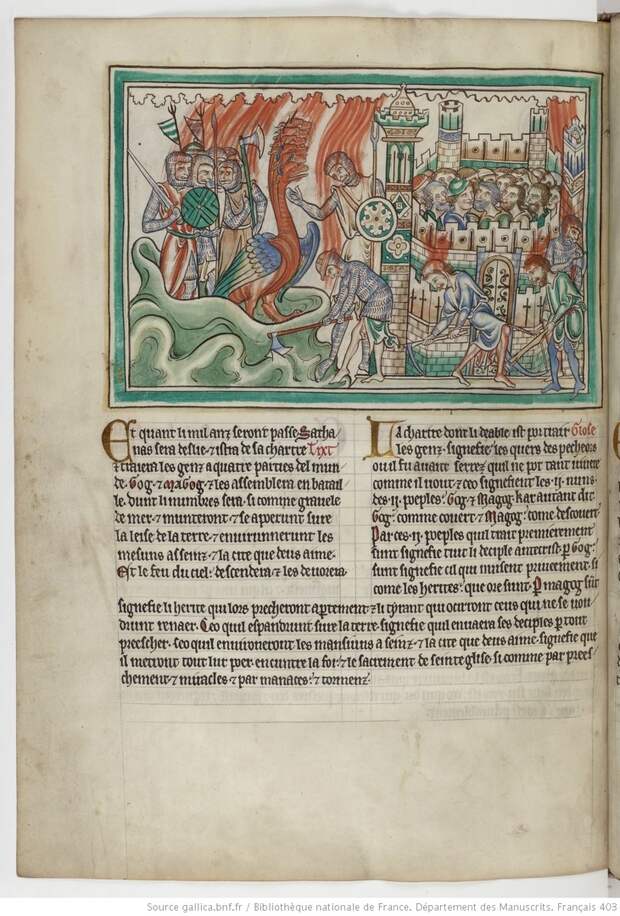 Et quant li mil anz seront passe Satha
nas sera deslie ⁊ istra de sa chartre Tixt
⁊ traiera les genz a quatre parties del mun
de Gog ⁊ Magog ⁊ les assemblera en batail
le. dunt li numbres sera si come gravele
de mer ⁊ munteront ⁊ se aperunt sure
la leise de la terre ⁊ envirunnerunt les
mesuns a seinz ⁊ la cite que deus aime
Et le feu du ciel descendera ⁊ les devorera
La chartre dont li deable ist por trair Glose
les genz signefie les quers des pecheors
ou il fu avant serrez quil ne pot tant nuire
comme il vout ⁊ ceo signefient les ii nuns
des ii poeples Gog ⁊ Magog kar autant dit
Gog comme covert ⁊ Magog come descovert
Par ces ii poeples quil trait premierement
sunt signefie tuit li deciple antecrist p Gog
sunt signefie cil qui nuisent priveement si
come les herites que ore sunt P magog sunt
signefie li herite qui lors precheront apertement ⁊ li tirant qui ocirront ceus qui ne se vou
drunt renaer. Ceo quil espandrunt sure la terre signefie quil enveiera ses deciples p tout
preescher. Ceo quil environeront les mansiuns a seinz ⁊ la cite que deus aime signefie que
il metront tout lur poer encuntre la foi ⁊ le sacrement de seinte glise si comme par prees
chement ⁊ miracles ⁊ par manaces ⁊ tormenz
Source gallica.bnf.fr / Bibliothèque nationale de France. Département des Manuscrits. Français 403